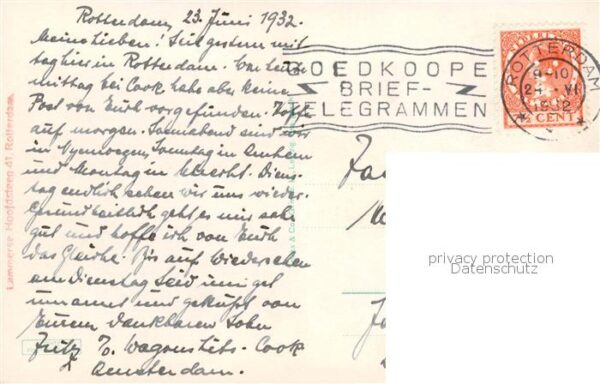 Rotterdam, 23. Juni 1932.
Meine Lieben! Seit gestern mit
tag hier in Rotterdam. War heute
mittag bei Cook habe aber keine
Post von Euch vorgefunden. Hoffe
auf morgen. Sonnabend sind wir
in Nymwegen, Sonntag in Arnhem
und Montag in Utrecht. Diens-
tag endlich sehen wir uns wieder.
Gesundheitlich geht es mir sehr
gut und hoffe ich von Euch
das Gleiche. Bis auf Wiedersehen
am Dienstag seid innigst
umarmt und geküsst von
Eurem dankbaren Sohn
Fritz
p. Wagons-Lits-Cook
Amsterdam.
GOEDKOOPE
BRIEF-
TELEGRAMMEN
ROTTERDAM
19-10
24 VI
1932
7½ CENT
Lammerse, Hoofdsteeg 41, Rotterdam
privacy protection
Datenschutz